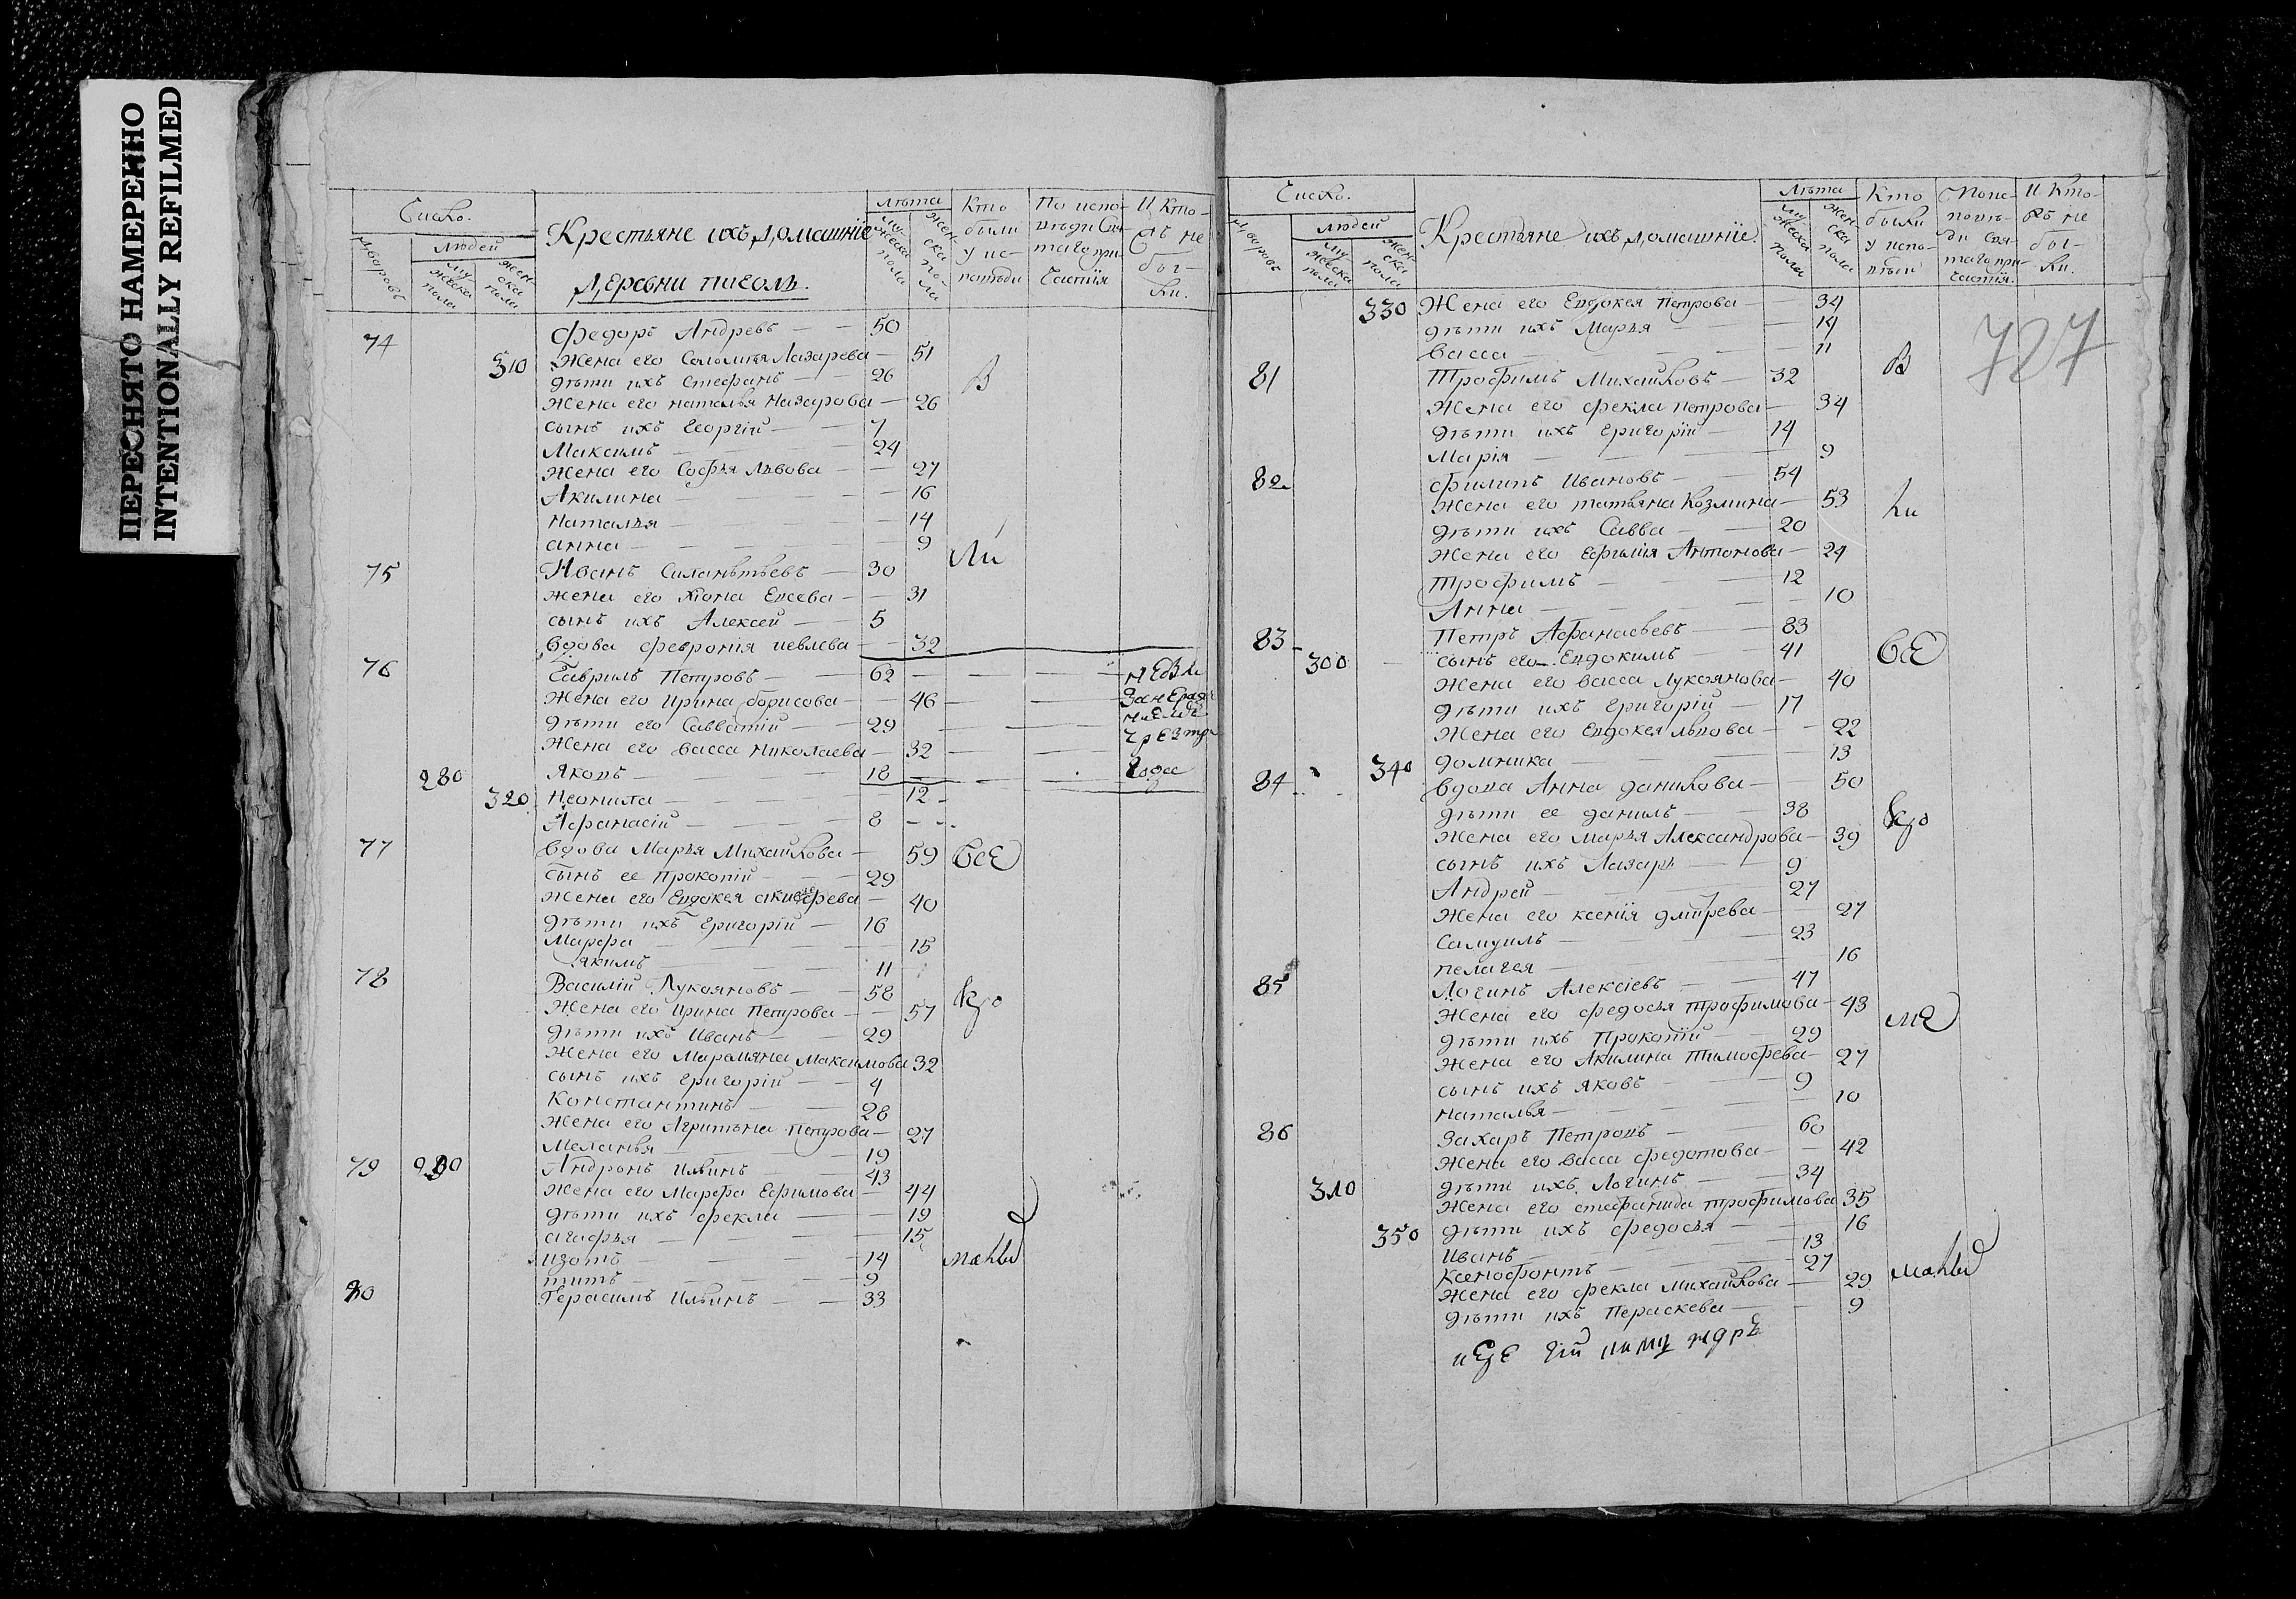 ПЕРЕСНЯТО НАМЕРЕННО
INTENTIONALLY REFILMED
Число.
Дворовъ
Людей
Мужеска пола
Женска пола
Крестьяне ихъ домашніе
Деревни
Лѣта
Мужеска пола
Женска пола
Кто были у исповѣди
По исповѣди Святаго причастія
И кто
не
бы-
ли.
74 Федоръ Андревъ — 50
310 Жена его Соломія Лазарева — 51
дѣти ихъ Стефанъ — 26
Жена его Наталья Назарова — 26
сынъ ихъ Георгій — 7
Максимъ — 24
Жена его Софья Львова — 27
Акилина — 16
Наталья — 14
анна — 9
75 Иванъ Силантьевъ — 30
жена его Евсева — 31
сынъ ихъ Алексей — 5
вдова Феврония иевлева — 32
76 Гаврилъ Петровъ — 62
Жена его Ирина борисова — 46
дѣти его Савватій — 29
Жена его васса Николаева — 32
280 Яковъ — 18
320 Неонила — 12
Афанасій — 8
77 Вдова Марья Михайлова — 59
Сынъ ее Прокопій — 29
Жена его Евдокея — 40
дѣти ихъ Григорій — 16
Марфа — 15
якимъ — 11
78 Василій Лукояновъ — 58
Жена его Ирина Петрова — 57
дѣти ихъ Иванъ — 29
Жена его Маремьяна Максимова 32
сынъ ихъ Григорій — 4
Константинъ — 28
Жена его Агрипѣна Петрова — 27
Меланья — 19
79 290 Андронъ Ильинъ — 43
Жена его Марфа Ефимова — 44
дѣти ихъ Фекла — 19
агафья — 15
изотъ — 14
титъ — 9
80 Герасимъ Ильинъ — 33
В
Ли
ВсЕ
Число.
Дворовъ
Людей
Мужеска пола
Женска пола
Крестьяне ихъ домашніе.
Лѣта
Мужеска пола
Женска пола
Кто были у испо-
И кто
не
бы-
ли.
727
330 Жена его Евдокея Петрова — 34
дѣти ихъ Марья — 14
васса — 11
81 Трофимъ Михайловъ — 32
Жена его Фекла Петрова — 34
дѣти ихъ Григорій — 14
Марія — 9
82 Филипъ Ивановъ — 54
Жена его татьяна Козмина — 53
дѣти ихъ Савва — 20
Жена его Ефимія Антонова — 24
Трофимъ — 12
Анна — 10
83 Петръ Афанасьевъ — 83
300 сынъ его Евдокимъ — 41
Жена его васса Лукоянова — 40
дѣти ихъ Григорій — 17
Жена его Евдокея львова — 22
340 домника — 13
84 вдова Анна данилова — 50
дѣти ее данилъ — 38
Жена его Марья Александрова — 39
сынъ ихъ Лазарь — 9
Андрей — 27
Жена его ксенія дмитрева — 27
Самуилъ — 23
пелагея — 16
85 Логинъ Алексіевъ — 47
Жена его федосья трофимова — 43
дѣти ихъ Прокопій — 29
Жена его Акилина Тимофева — 27
сынъ ихъ яковъ — 9
наталья — 10
86 Захаръ Петровъ — 60
Жена его васса федотова — 42
310 дѣти ихъ Логинъ — 34
Жена его стефанида трофимова 35
350 дѣти ихъ федосья — 16
Иванъ — 13
Ксенофонтъ — 27
Жена его Фекла Михайлова — 29
дѣти ихъ Пераскева — 9
В
ли
ВсЕ